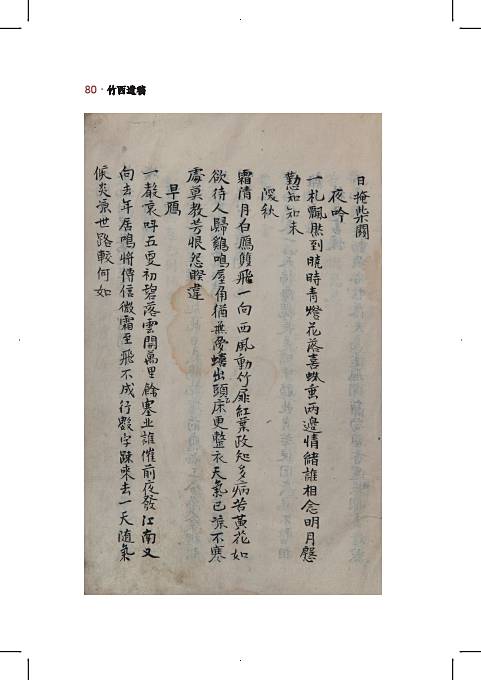 80 · 竹西遺稿
日掩柴關
夜吟
一札飄然到曉時青燈花落喜蛛垂兩邊情緒誰相念明月慇
懃知知未
深秋
霜清月白鴈飛一向西風動竹扉紅葉政知多病若黃花如
欲待人歸鷄鳴屋角猶無出頭床更整衣天氣已凉不寒
處莫教芳恨怨睽違
早鴈
一聲哀呌五更初碧落雲開萬里餘塞北誰催前夜發江南又
向去年居鳴將傳信微霜至飛不成行數字踈來去一天隨氣
候炎凉世路較何如